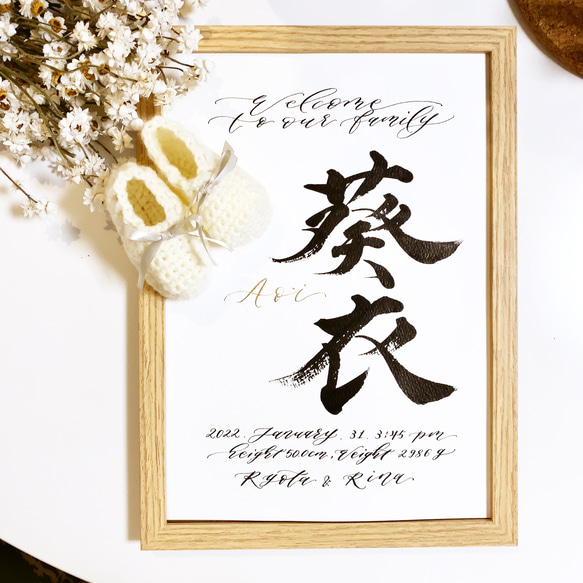 Welcome
to our family
葵衣
Aoi
2022. January. 31. 3:45 pm
height 50.0cm, Weight 2986 g
Ryota & Rina